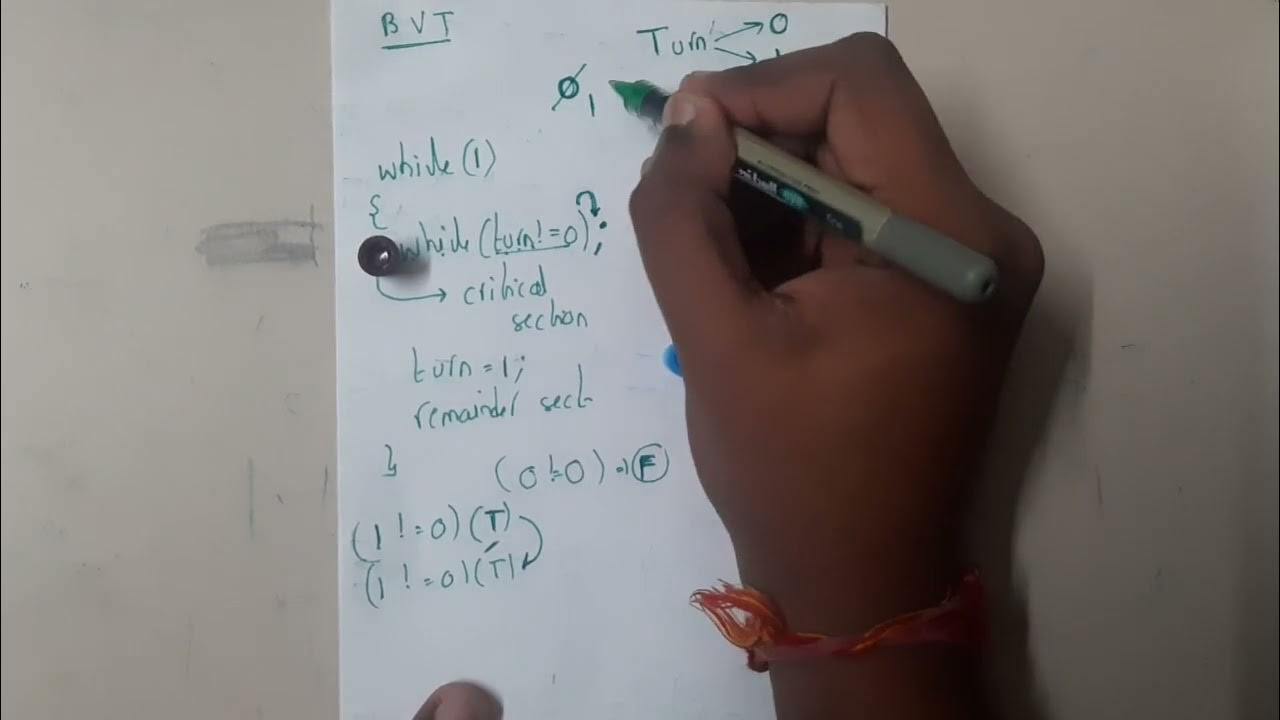 BVT
Turn → 0
0 1
while (1)
{
while (turn != 0);
→ critical
section
turn = 1;
remainder sect
}
(0 != 0) ⇒ F
(1 != 0) (T)
(1 != 0) (T)